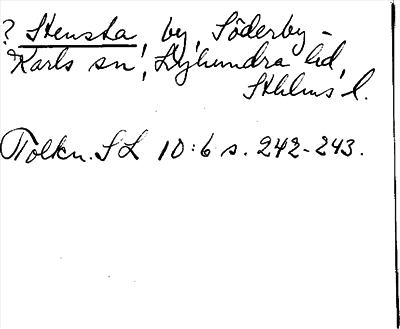 ? Stensta, by, Söderby-
Karls sn, Lyhundra hd,
Sthlms l.
Tolkn. SL 10:6 s. 242-243.